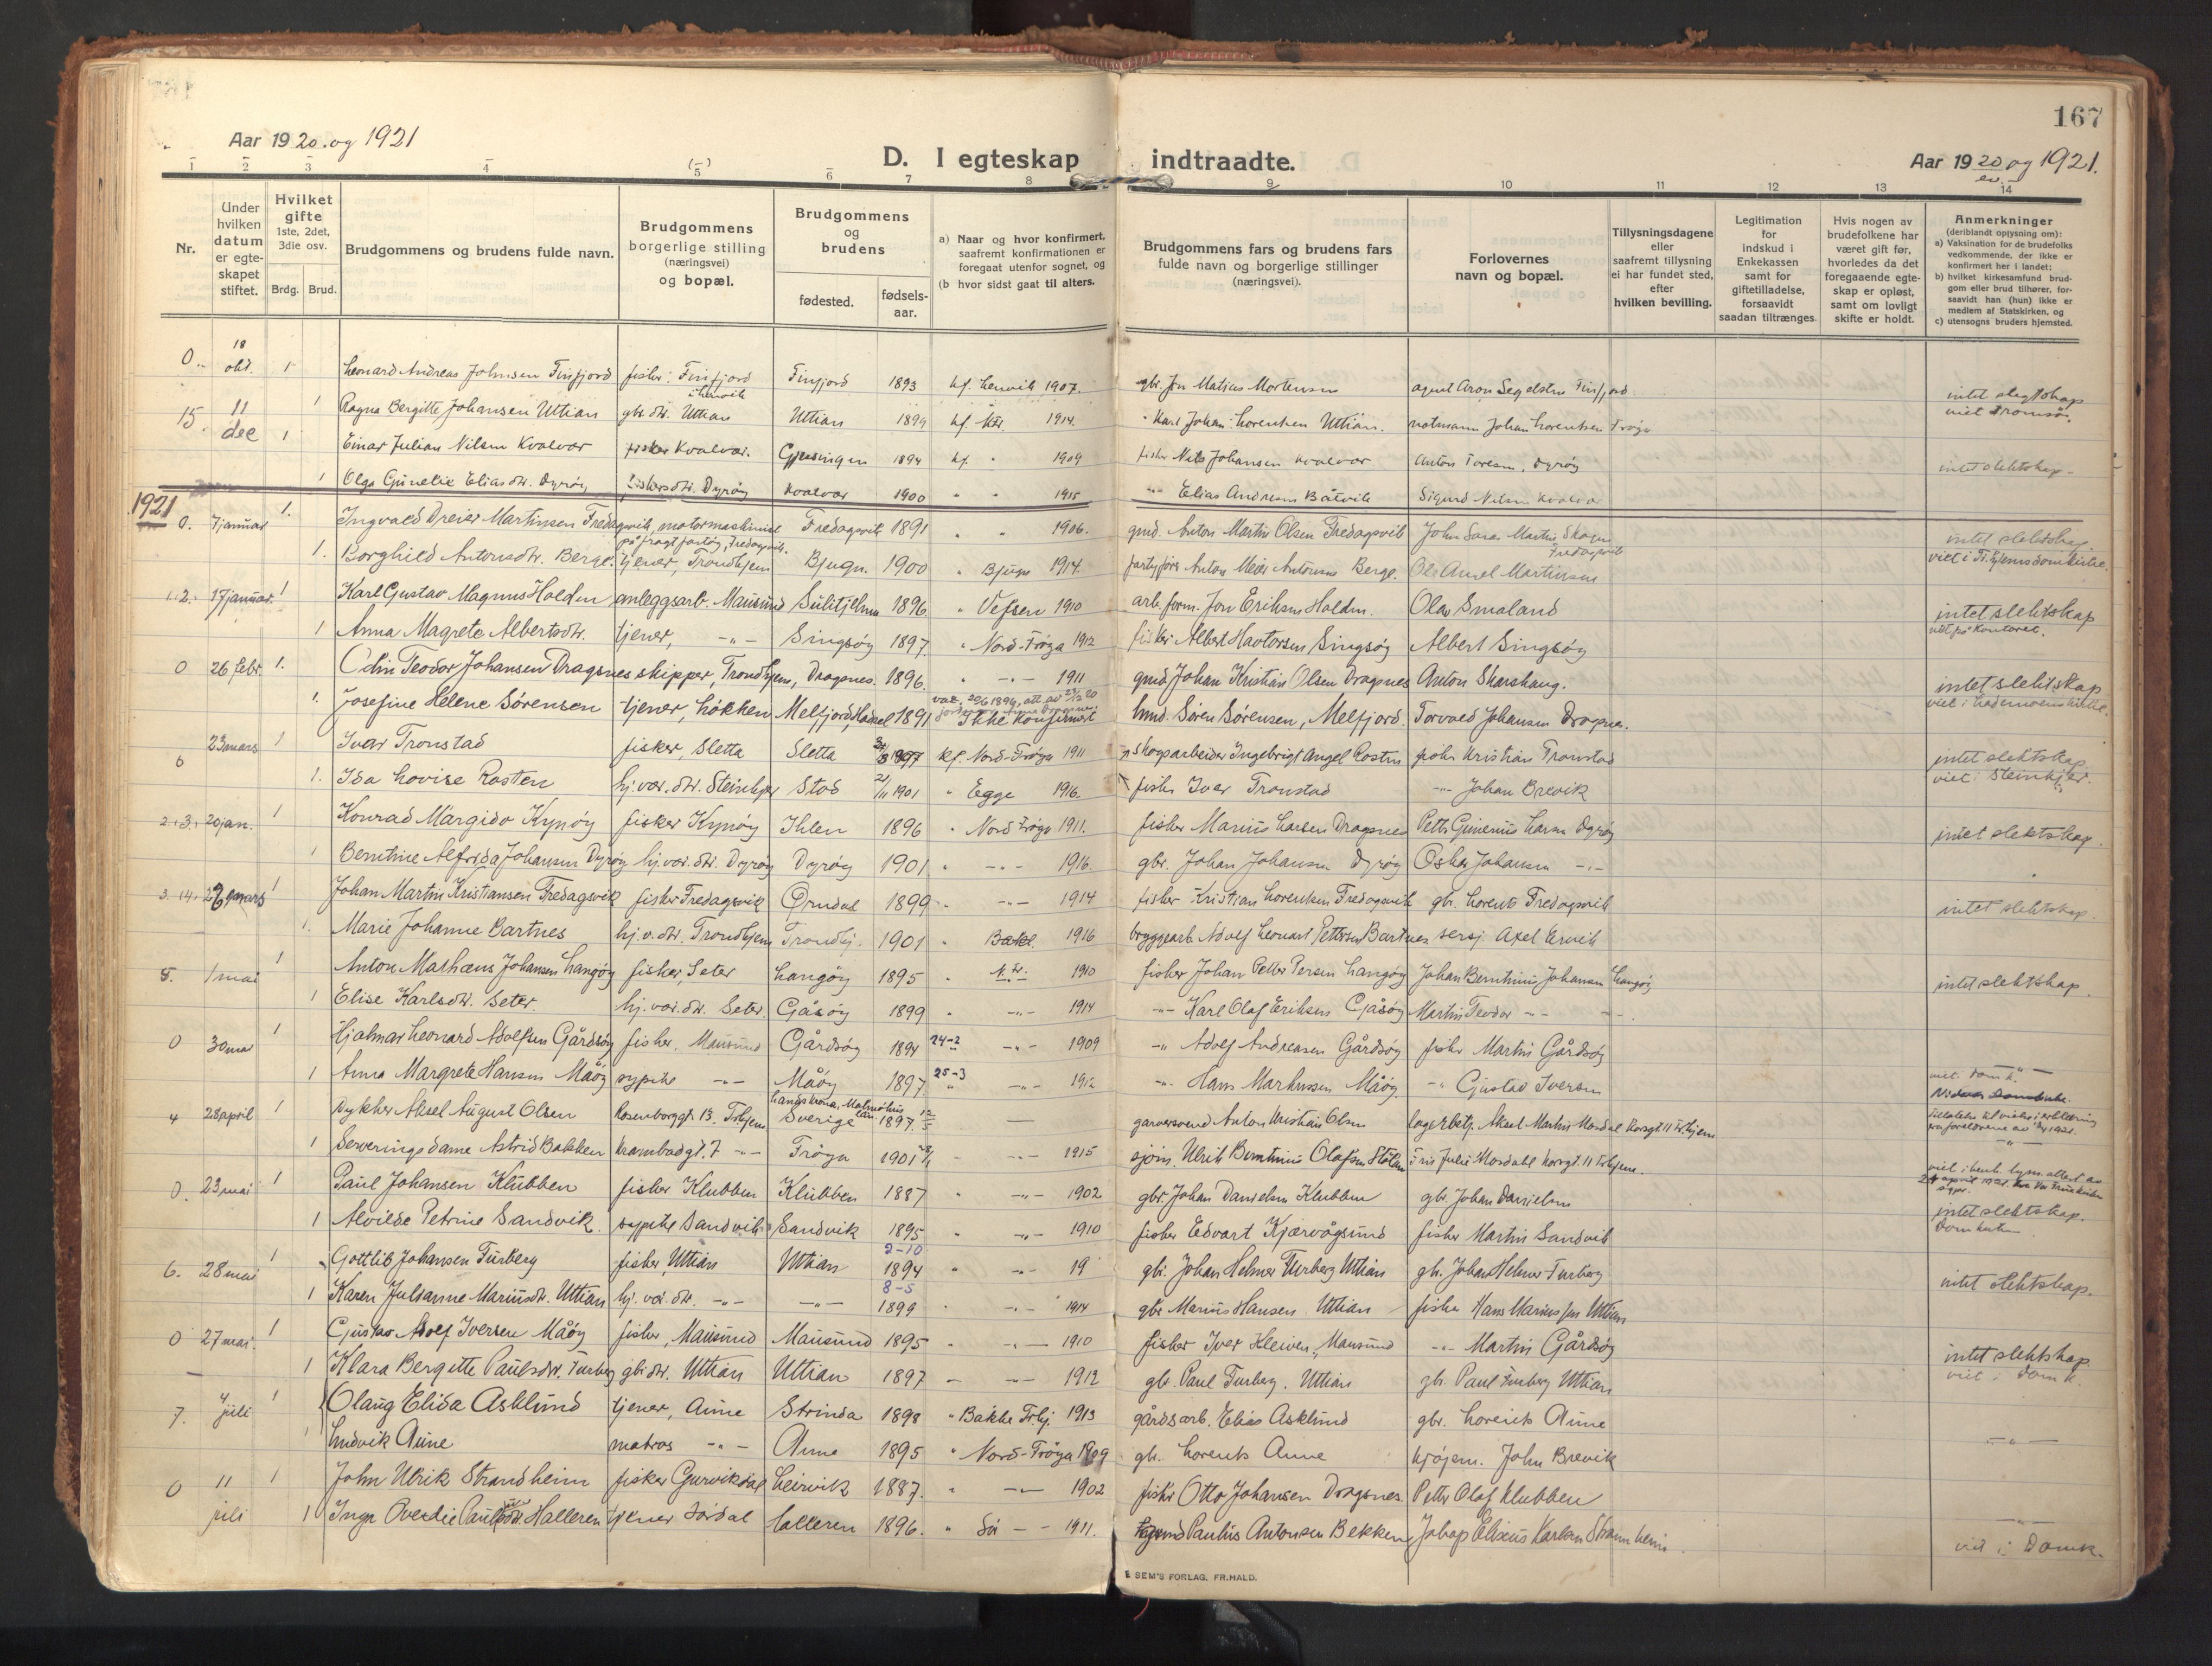 167
Aar 1920 og 1921
D. I egteskap indtraadte.
Aar 1920 og 1921.
1 2 3 4 5 6 7 8 9 10 11 12 13 14
Nr.
Under hvilken datum er egteskapet stiftet.
Hvilket gifte 1ste, 2det, 3die osv.
Brdg. Brud.
Brudgommens og brudens fulde navn.
Brudgommens borgerlige stilling (næringsvei) og bopæl.
Brudgommens og brudens
fødested. fødselsaar.
a) Naar og hvor konfirmert, saafremt konfirmationen er foregaat utenfor sognet, og
(b hvor sidst gaat til alters.
Brudgommens fars og brudens fars fulde navn og borgerlige stillinger (næringsvei).
Forlovernes navn og bopæl.
Tillysningsdagene eller saafremt tillysning ei har fundet sted, efter hvilken bevilling.
Legitimation for indskud i Enkekassen samt for giftetilladelse, forsaavidt saadan tiltrænges.
Hvis nogen av brudefolkene har været gift før, hvorledes da det foregaaende egteskap er opløst, samt om lovligt skifte er holdt.
Anmerkninger (deriblandt oplysning om):
a) Vaksination for de brudefolks vedkommende, der ikke er konfirmert her i landet;
b) hvilket kirkesamfund brudgom eller brud tilhører, forsaavidt han (hun) ikke er medlem af Statskirken, og
c) utensogns bruders hjemsted.
0. 18 okt. 1 Leonard Andreas Johnsen Finfjord fisker, Finfjord i Lenvik Finfjord 1893 kf. Lenvik 1907. gbr. Jon Matias Mortensen agent Aron Segelsten Finfjord intet slegtskap
1 Ragna Bergitte Johansen Uttian gbr. dtr. Uttian Uttian 1899 kf. 1914. " Karl Johan Lorentsen Uttian. Johan Lorentsen Frøya viet Tromsø.
15. 11 dec 1 Einar Julian Nilsen Kvalvær fisker Kvalvær. Gjæsingen 1894 kf. " 1909 fisker Nils Johansen Kvalvær Anton Toresen, Dyrøy intet slektskap
1 Olga Gunelie Eliasdtr. Dyrøy fiskersdtr. Dyrøy Kvalvær 1900 " " 1915 -"- Elias Andresen Båtvik Sigurd Nilsen Kvalvær
1921
0. 7 januar 1. Ingvald Dreier Martinsen Fredagsvik, motormaskinist på fragtfartøy, Fredagsvik. Fredagsvik 1891 " " 1906. gmd. Anton Martin Olsen Fredagsvik Martin Skagen Fredagsvik intet slektskap
1. Borghild Antonsdtr. Berge. tjener, Trondhjem Bjugn. 1900 " Bjugn 1914. Anton Meier Antonsen Berge. Ole Martinsen viet i Tr.hjems domkirke.
1. 2. 17 januar. 1 Karl Gustav Magnus Holden anleggsarb. Mausund Sulitjelma 1896 " Vefsen 1910 arb. form. Jon Eriksen Holden. Olav Småland intet slektskap
1 Anna Magrete Albertsdtr. tjener, -"- Singsøy 1897. " Nord-Frøya 1912 fisker Albert Havtorsen Singsøy Albert Singsøy viet på kontoret.
0 26 febr. 1. Odin Teodor Johansen Dragsnes skipper, Trondhjem, Dragsnes. 1896. " -"- 1911 gmd. Johan Kristian Olsen Dragsnes Anton Skarshaug. intet slektskap
1. Josefine Helene Sørensen tjener, Løkken Melfjord, Hadsel 1891 Ikke konfirmert Søren Sørensen, Melfjord. Torvald Johansen Dragsnes. viet i Lademoens kirke.
0 23 mars 1 Ivar Tronstad fisker, Sletta Sletta 1897 kf. Nord-Frøya 1911 skogsarbeider Ingebrigt Angel Rosten Kristian Tronstad intet slektskap
1. Ida Lovise Rosten hj. vær. dtr. Steinkjer Stod 21/11 1901 " Egge 1916. fisker Iver Tronstad -"- Johan Brevik viet i Steinkjer.
2. 3. 20 jan. 1 Konrad Margido Kynøy fisker Kynøy Ihlen 1896 " Nord-Frøya 1911. fisker Marius Larsen Dragsnes Petter Larsen Dyrøy intet slektskap
1 Berntine Alfrida Johansen Dyrøy hj. vær. dtr. Dyrøy Dyrøy 1901 " -"- 1916. gbr. Johan Johansen Dyrøy Oskar Johansen -"-
3. (4. 26 mars 1 Johan Martin Kristiansen Fredagsvik fisker Fredagsvik 1899 " -"- 1914 fisker Kristian Lorentsen Fredagsvik gbr. Lorents Fredagsvik intet slektskap
1. Marie Johanne Bartnes hj. v. dtr. Trondhjem Trondhj. 1901 " Bakl. 1916 bryggearb. Adolf Leonart Pettersen Bartnes sersj. Axel Ervik
5. 1 mai 1 Anton Mathæus Johansen Langøy fisker, Seter Langøy 1895 " N. Fr. 1910 fisker Johan Petter Persen Langøy Johan Berntinus Johansen Langøy intet slektskap
1 Elise Karlsdtr. Seter. hj. vær. dtr. Seter. Gåsøy 1899 " -"- 1914 -"- Karl Olaf Eriksen Gåsøy Martin Teodor -"- -"-
0 30 mai 1 Hjalmar Leonard Adolfsen Gårdsøy fisker, Mausund Gårdsøy 1894 24-2 -"- 1909 -"- Adolf Andreasen Gårdsøy fisker Martin Gårdsøy
1 Anna Margrete Hansen Måøy sypike -"- Måøy 1897. 25-3 -"- 1912 -"- Hans Markussen Måøy -"- Gustad Iversen viet. Domk.
4 28 april 1 Dykker Aksel August Olsen Rosenborggt. 13. Trhjem Landskrona, Malmöhus län. Sverige 1897. 12/5 — garversvend Anton Kristian Olsen lagerbetj. Aksel Martin Mosdal Korsgt. 11 Trhjem
1 Serveringsdame Astrid Bakken Krambodgt. 7 -"- Frøya 1901 -"- 1915 sjøm. Ulrik Berntinus Olafsen Stølan Julie Mosdahl Korsgt. 11 Trhjem. -"-
0. 23 mai 1 Paul Johansen Klubben fisker Klubben Klubben 1887 " -"- 1902 gbr. Johan Danielsen Klubben gbr. Johan Danielsen
1 Alvilde Petrine Sandvik. sypike Sandvik Sandvik 1895 " -"- 1910 fisker Edvart Kjærvågsund fisker Martin Sandvik intet slektskap. Domkirken
6. 28 mai 1 Gottlib Johansen Furberg fisker, Uttian Uttian 2-10 1894 " -"- 19 gbr. Johan Helmer Furberg Uttian gbr. Johan Helmer Furberg intet slektskap.
1 Karen Julianne Mariusdtr. Uttian hj. vær. dtr. -"- -"- 8-5 1899 " -"- 1914 gbr. Marius Hansen Uttian fisker Hans Mariussen Uttian
0 27 mai. 1 Gustav Adolf Iversen Måøy fisker, Mausund Mausund 1895 " -"- 1910 fisker Iver Kleiven, Mausund -"- Martin Gårdsøy intet slektskap.
1 Klara Bergitte Paulsdtr. Furberg gbr. dtr. Uttian Uttian 1897 -"- 1912 gbr. Paul Furberg. Uttian gbr. Paul Furberg Uttian viet i Domk.
7. 4 juli 1 Olaug Elida Asklund tjener, Aune Strinda 1898 " Bakke Trhj. 1913 gårdsarb. Elias Asklund gbr. Lorents Aune
1 Ludvik Aune matros -"- Aune 1895 " Nord-Frøya 1909 gbr. Lorents Aune kjøpm. John Brevik -"-
0 11 juli 1 John Ulrik Strandheim fisker Gurvikdal Leirvik 1887. " -"- 1902 fisker Otto Johansen Dragsnes Petter Olaf Klubben
1 Inga Ovedie Paulsdtr. Halleren tjener Halleren 1896. " Sør -"- 1911. Paulus Antonsen Bekken Elisæus Karlsen -"- viet i Domk.
E SEM'S FORLAG, FR.HALD.